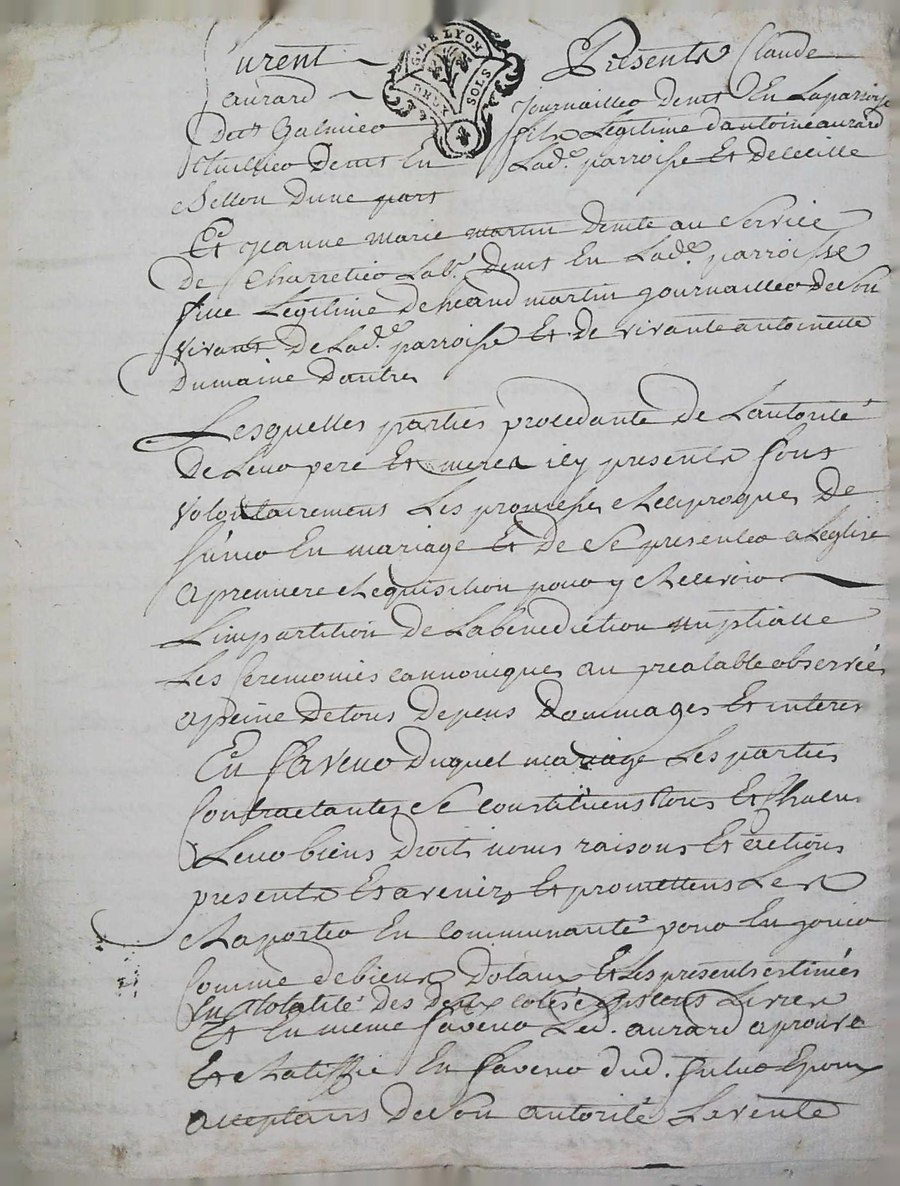 furent Presents Claude
aurard journaillier demt En La parroisse
De St Galmier fils Legitime d'antoine aurard
demt En Lad.e parroisse Et de
chellon Dune part
Et jeanne marie martin Demte au service
De charretier Lab.r Demt En Lad.e parroisse
fille Legitime De martin journaillier de son
vivant De Lad.e parroisse Et De vivante antoinette
Dumaine Dautre
Lesquelles parties procedante De Lautorité
De Leur pere Et mere icy presents font
volontairement Les promesses Reciproques De
sunir En mariage Et De se presenter a Leglise
a premiere Requisition pour y Recevoir
Limpartition De La benediction nuptialle
Les Ceremonies cannoniques au prealable observées
a peine De tous Depens Dommages Et interets
En faveur Duquel mariage Les parties
Contractantes se constituent tous Et chacun
Leur biens Droits noms raisons Et actions
presents Et avenir Et promettent Les
Raporter En communauté pour En jouir
Comme de biens Dotaux Et Les presents estimés
En totalité des deux cotés Livres
Et En meme faveur Led. aurard aprouve
Et Ratiffie En faveur dud. futur Epoux
acceptant De son autorité La vente
G. DE LYON
DEUX SOLS